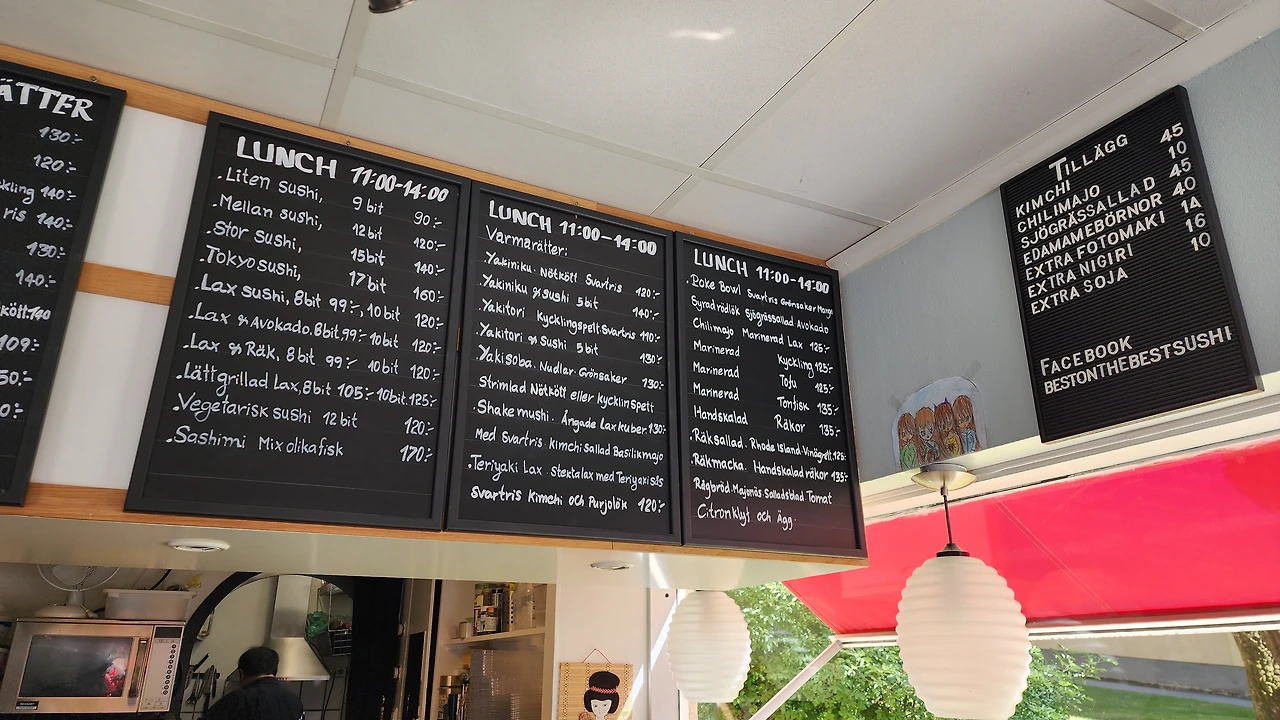 ÄTTER
130:-
120:-
kling 140:-
ris 140:-
130:-
140:-
kött 140
109:-
50:-
0:-
LUNCH 11:00-14:00
.Liten sushi, 9 bit 90:-
.Mellan sushi, 12 bit 120:-
.Stor sushi, 15 bit 140:-
.Tokyo sushi, 17 bit 160:-
.Lax sushi, 8 bit 99:-, 10 bit 120:-
.Lax & Avokado. 8 bit, 99:- 10 bit 120:-
.Lax & Räk, 8 bit 99:- 10 bit 120:-
.Lättgrillad Lax, 8 bit 105:- 10 bit. 125:-
.Vegetarisk sushi 12 bit 120:-
.Sashimi Mix olika fisk 170:-
LUNCH 11:00-14:00
Varmarätter:
.Yakiniku. Nötkött Svartris 120:-
.Yakiniku & sushi 5 bit 140:-
.Yakitori Kycklingspett svartris 110:-
.Yakitori & Sushi 5 bit 130:-
.Yakisoba. Nudlar Grönsaker 130:-
Strimlad Nötkött eller kycklinspett
.Shake mushi. Ångade Laxkuber. 130:-
Med Svartris. Kimchi Sallad Basilikmajo
.Teriyaki Lax stekta lax med Teriyaki sås
Svartris Kimchi och Purjolök 120:-
LUNCH 11:00-14:00
.Poke Bowl Svartris Grönsaker Mango
Syradrödlök Sjögrässallad Avokado
Chilimajo Marinerad Lax 125:-
Marinerad kyckling 125:-
Marinerad Tofu 125:-
Marinerad Tonfisk 135:-
Handskalad Räkor 135:-
.Räksallad. Rhode Island. Vinägrett. 125:-
.Räkmacka. Handskalad räkor 135:-
Rågbröd Majonäs Salladsblad Tomat
Citronklyft och Ägg.
TILLÄGG
KIMCHI 45
CHILIMAJO 10
SJÖGRÄSSALLAD 45
EDAMAMEBÖRNOR 40
EXTRA FOTOMAKI 14
EXTRA NIGIRI 16
EXTRA SOJA 10
FACEBOOK
BESTONTHEBESTSUSHI